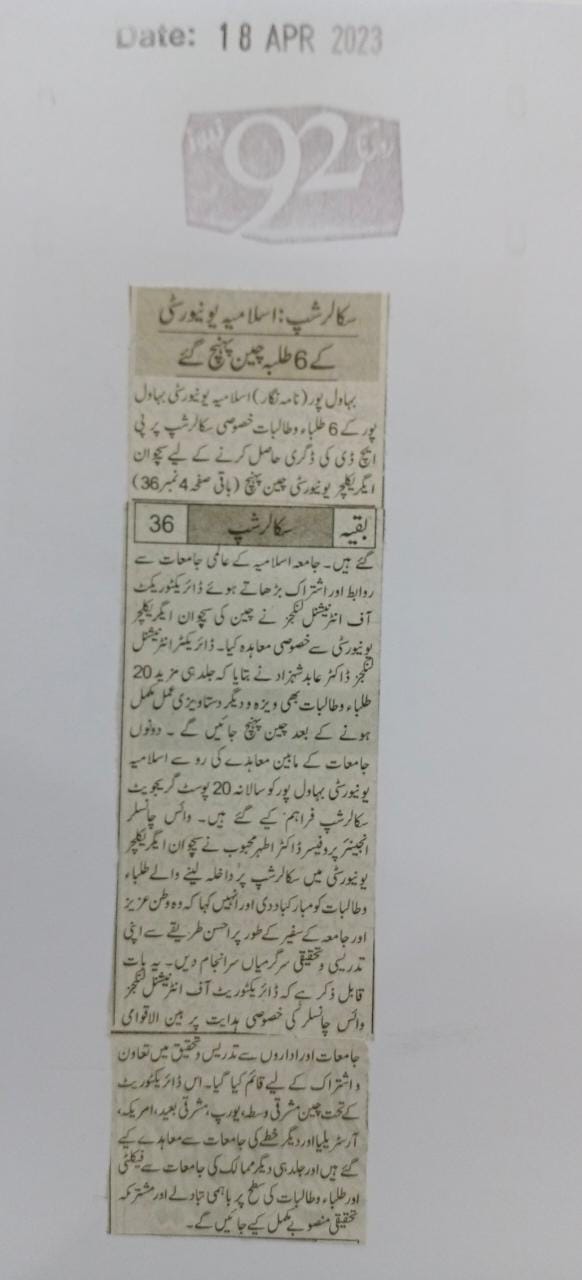 Date: 18 APR 2023
روزنامہ 92 نیوز
سکالرشپ: اسلامیہ یونیورسٹی
کے 6 طلبہ چین پہنچ گئے
بہاول پور (نامہ نگار) اسلامیہ یونیورسٹی بہاول
پور کے 6 طلباء وطالبات خصوصی سکالرشپ پر پی
ایچ ڈی کی ڈگری حاصل کرنے کے لیے سیچوان
ایگریکلچر یونیورسٹی چین پہنچ (باقی صفحہ 4 نمبر 36)
بقیہ سکالرشپ 36
گئے ہیں۔ جامعہ اسلامیہ کے عالمی جامعات سے
روابط اور اشتراک بڑھاتے ہوئے ڈائریکٹوریکٹ
آف انٹرنیشنل لنکجز نے چین کی سیچوان ایگریکلچر
یونیورسٹی سے خصوصی معاہدہ کیا۔ ڈائریکٹر انٹرنیشنل
لنکجز ڈاکٹر عابد شہزاد نے بتایا کہ جلد ہی مزید 20
طلباء وطالبات بھی ویزہ و دیگر دستاویزی عمل مکمل
ہونے کے بعد چین پہنچ جائیں گے ۔ دونوں
جامعات کے مابین معاہدے کی رو سے اسلامیہ
یونیورسٹی بہاول پور کو سالانہ 20 پوسٹ گریجویٹ
سکالرشپ فراہم کیے گئے ہیں۔ وائس چانسلر
انجینئر پروفیسر ڈاکٹر اطہر محبوب نے سیچوان ایگریکلچر
یونیورسٹی میں سکالرشپ پر داخلہ لینے والے طلباء
وطالبات کو مبارکباد دی اور انہیں کہا کہ وہ وطن عزیز
اور جامعہ کے سفیر کے طور پر احسن طریقے سے اپنی
تدریسی و تحقیقی سرگرمیاں سرانجام دیں۔ یہ بات
قابل ذکر ہے کہ ڈائریکٹوریٹ آف انٹرنیشنل لنکجز
وائس چانسلر کی خصوصی ہدایت پر بین الاقوامی
جامعات اور اداروں سے تدریس و تحقیق میں تعاون
و اشتراک کے لیے قائم کیا گیا۔ اس ڈائریکٹوریٹ
کے تحت چین مشرقی وسطہ، یورپ، مشرقی بعید، امریکہ،
آرسٹریلیا اور دیگر خطے کی جامعات سے معاہدے کیے
گئے ہیں اور جلد ہی دیگر ممالک کی جامعات سے فیکلٹی
اور طلباء وطالبات کی سطح پر باہمی تبادلے اور مشترکہ
تحقیقی منصوبے مکمل کیے جائیں گے۔